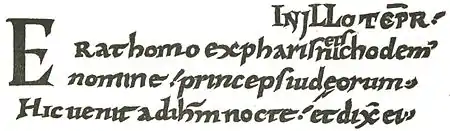 IN ILLO TĒPR
ERAT homo ex phariseis nichodem
nomine princeps iudeorum
Hic uenit ad ihm nocte et dix ei